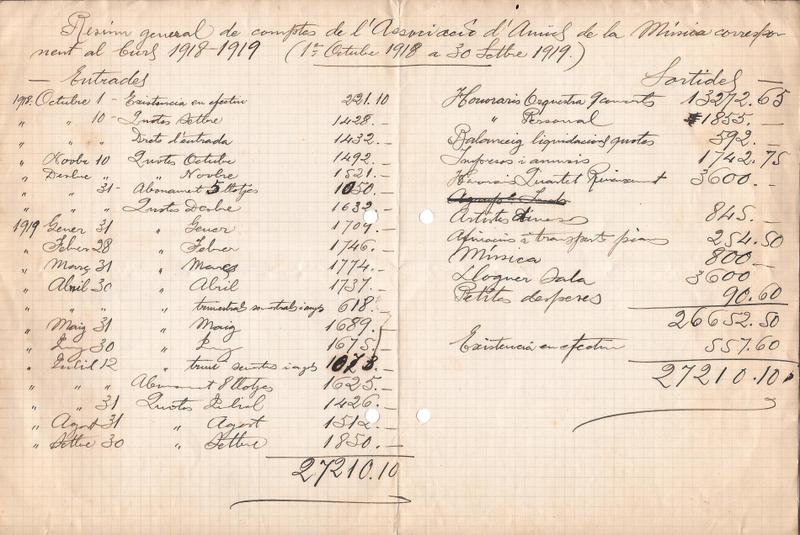 Resúm general de comptes de l'Associació d'Amics de la Música correspo-
nent al Curs 1918-1919 (1er Octubre 1918 a 30 Setbre 1919.)
— Entrades
1918. Octubre 1 - Existencia en efectiu 221.10
" " 10 - Quotes Setbre 1428.—
" " " Drets d'entrada 1432.—
" Novbre 10 Quotes Octubre 1492.—
" Desbre " " Novbre 1521.—
" " 31 - Abonament 5 llotjes 1050.—
" " " Quotes Desbre 1632.—
1919 Gener 31 " Gener 1704.—
" Febrer 28 " Febrer 1746.—
" Març 31 " Març 1774.—
" Abril 30 " Abril 1737.—
" " " trimestral semestral i anys 618.—
" Maig 31 " Maig 1689.—
" Juny 30 " Juny 1675.—
" Juliol 12 " trim semtres i anys 1073.—
" " " Abonament 8 llotjes 1625.—
" " 31 Quotes Juliol 1426.—
" Agost 31 " Agost 1512.—
" Setbre 30 " Setbre 1850.—
27210.10
Sortides —
Honoraris Orquestra 9 concerts 13272.65
" Personal 1855.—
Balanceig liquidacions quotes 592.—
Impresos i anuncis 1742.75
Honoraris Quartet Renaixement 3600.—
Artistes diversos 845.—
Afinacio i transports pianos 254.50
Música 800.—
Lloguer Sala 3600
Petites despeses 90.60
26652.50
Existencia en efectiu 557.60
27210.10